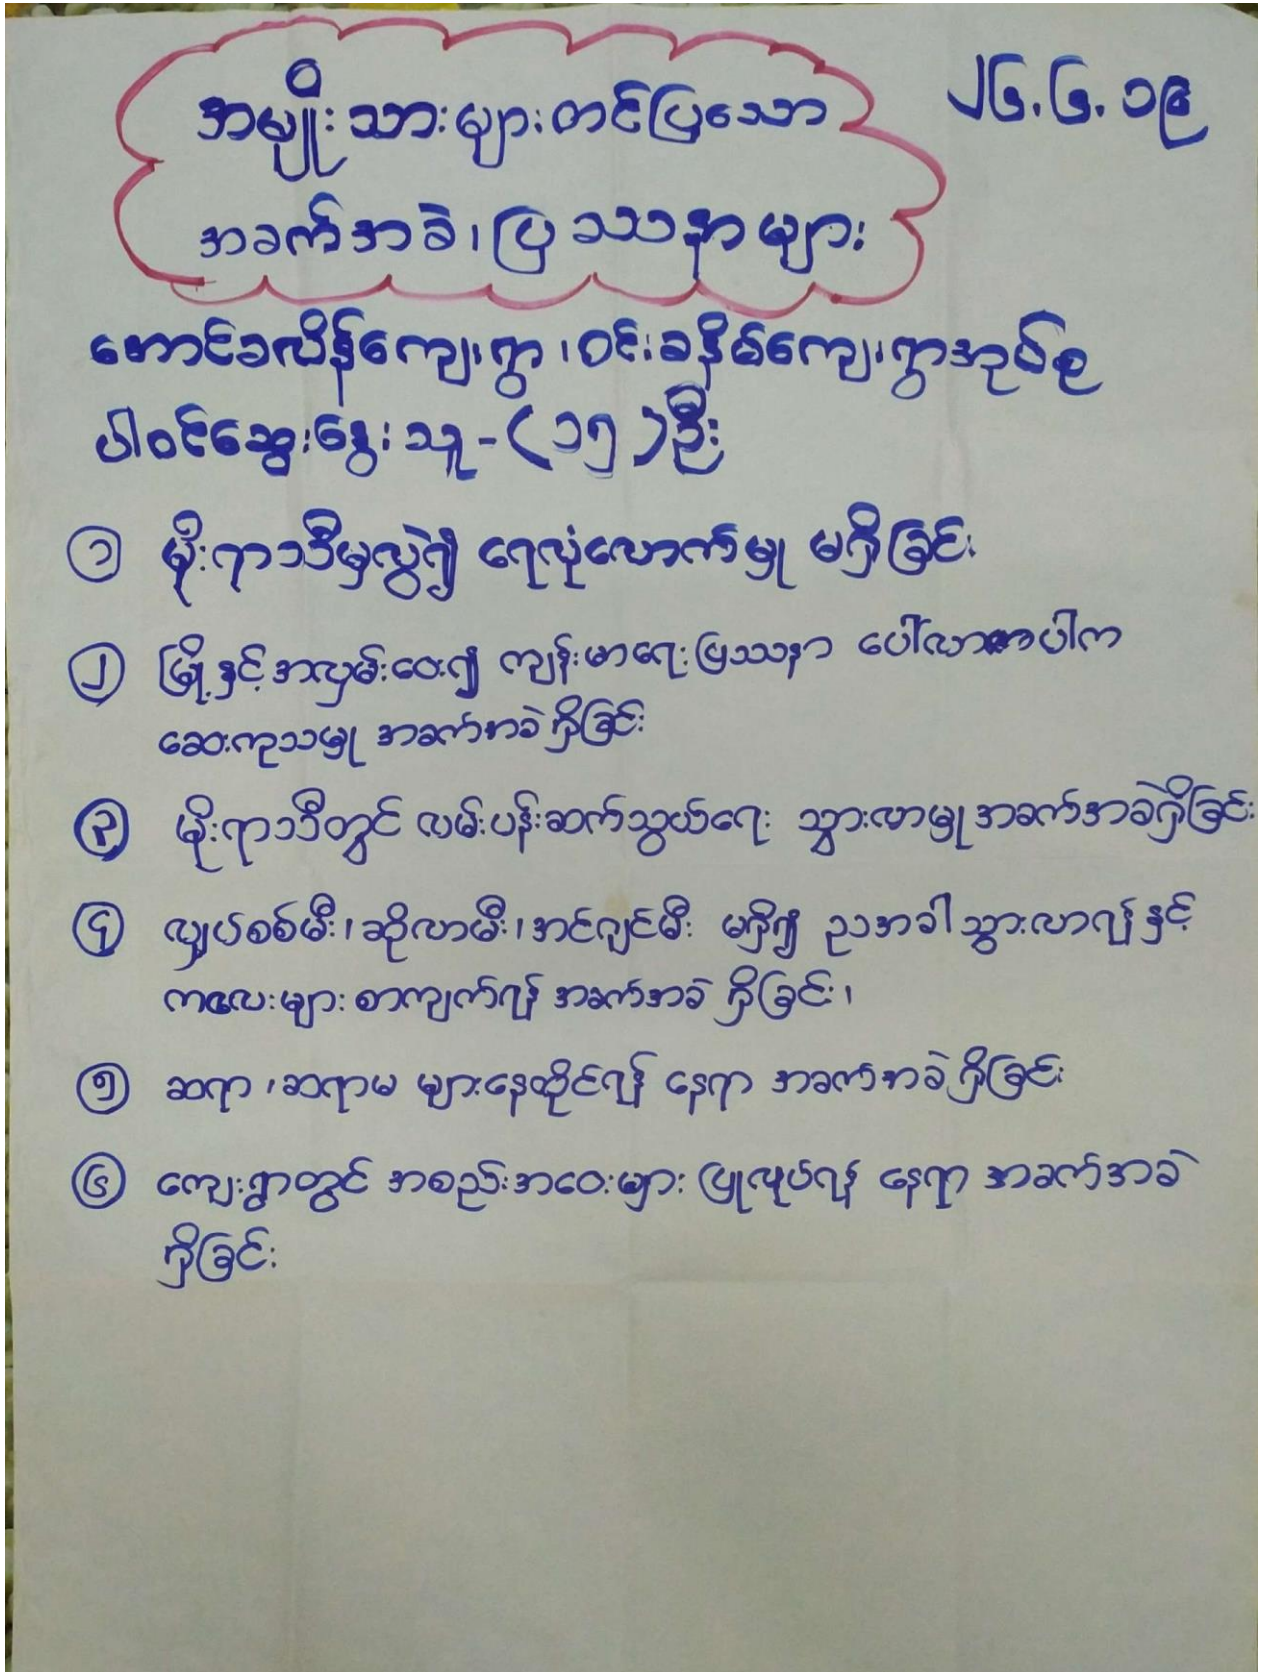 အမျိုးသားများတင်ပြသော
၂၆.၆.၁၉
အခက်အခဲ၊ ပြဿနာများ
တောင်ခလိန်ကျေးရွာ ၊ ဝင်းခနိမ်ကျေးရွာအုပ်စု
ပါဝင်ဆွေးနွေးသူ - (၁၅) ဦး
၁ မိုးရာသီမှလွဲ၍ ရေလုံလောက်မှု မရှိခြင်း
၂ မြို့နှင့်အလှမ်းဝေး၍ ကျန်းမာရေးပြဿနာ ပေါ်လာပါက
ဆေးကုသမှု အခက်အခဲရှိခြင်း
၃ မိုးရာသီတွင် လမ်းပန်းဆက်သွယ်ရေး သွားလာမှုအခက်အခဲရှိခြင်း
၄ လျှပ်စစ်မီး၊ ဆိုလာမီး၊ အင်ဂျင်မီး မရှိ၍ ညအခါသွားလာရန်နှင့်
ကလေးများ စာကျက်ရန် အခက်အခဲ ရှိခြင်း၊
၅ ဆရာ ၊ ဆရာမ များနေထိုင်ရန် နေရာ အခက်အခဲရှိခြင်း
၆ ကျေးရွာတွင် အစည်းအဝေးများ ပြုလုပ်ရန် နေရာ အခက်အခဲ
ရှိခြင်း